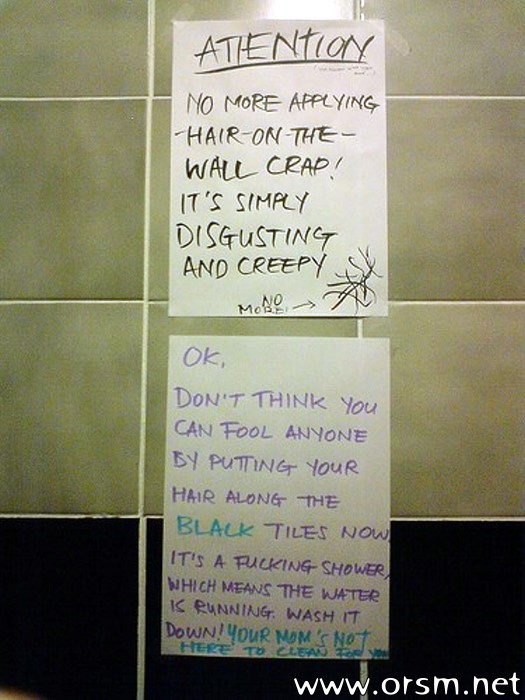 ATTENTION
NO MORE APPLYING
-HAIR-ON-THE-
WALL CRAP!
IT'S SIMPLY
DISGUSTING
AND CREEPY
NO
MORE! →
OK,
DON'T THINK YOU
CAN FOOL ANYONE
BY PUTTING YOUR
HAIR ALONG THE
BLACK TILES NOW
IT'S A FUCKING SHOWER,
WHICH MEANS THE WATER
IS RUNNING. WASH IT
DOWN! YOUR MOM'S NOT
HERE TO CLEAN FOR YOU
www.orsm.net